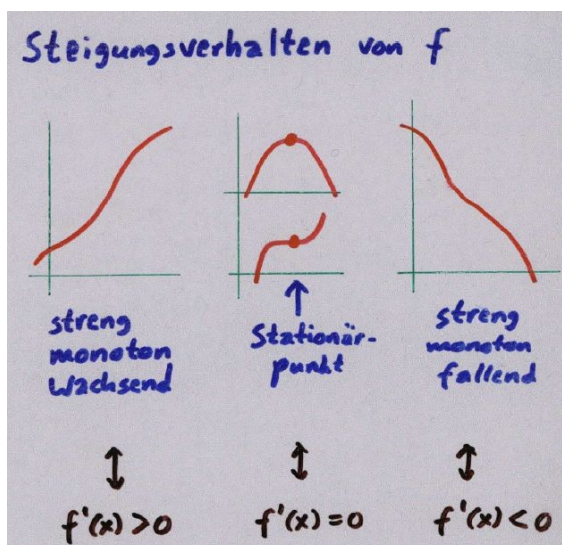 Steigungsverhalten von f
streng
monoton
Wachsend
Stationär-
punkt
streng
monoton
fallend
↕
↕
↕
f'(x) > 0
f'(x) = 0
f'(x) < 0